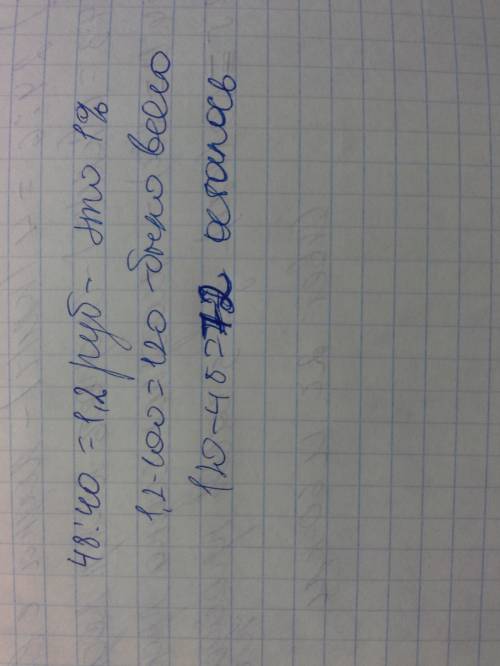 48:40=1,2 руб - это 1%
1,2·100=120 - было всего
120-48=72 осталось